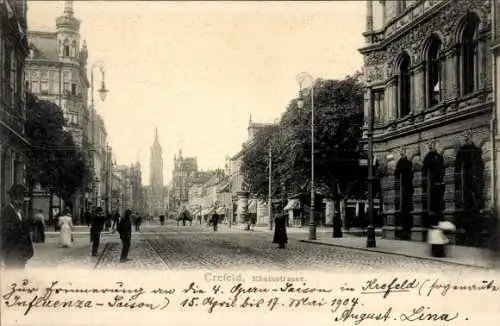 Crefeld, Rheinstrasse
Zur Erinnerung an die 4. Opern-Saison in Crefeld (sogenannte
Influenza-Saison) 15. April bis 17. Mai 1904.
August. Lina.